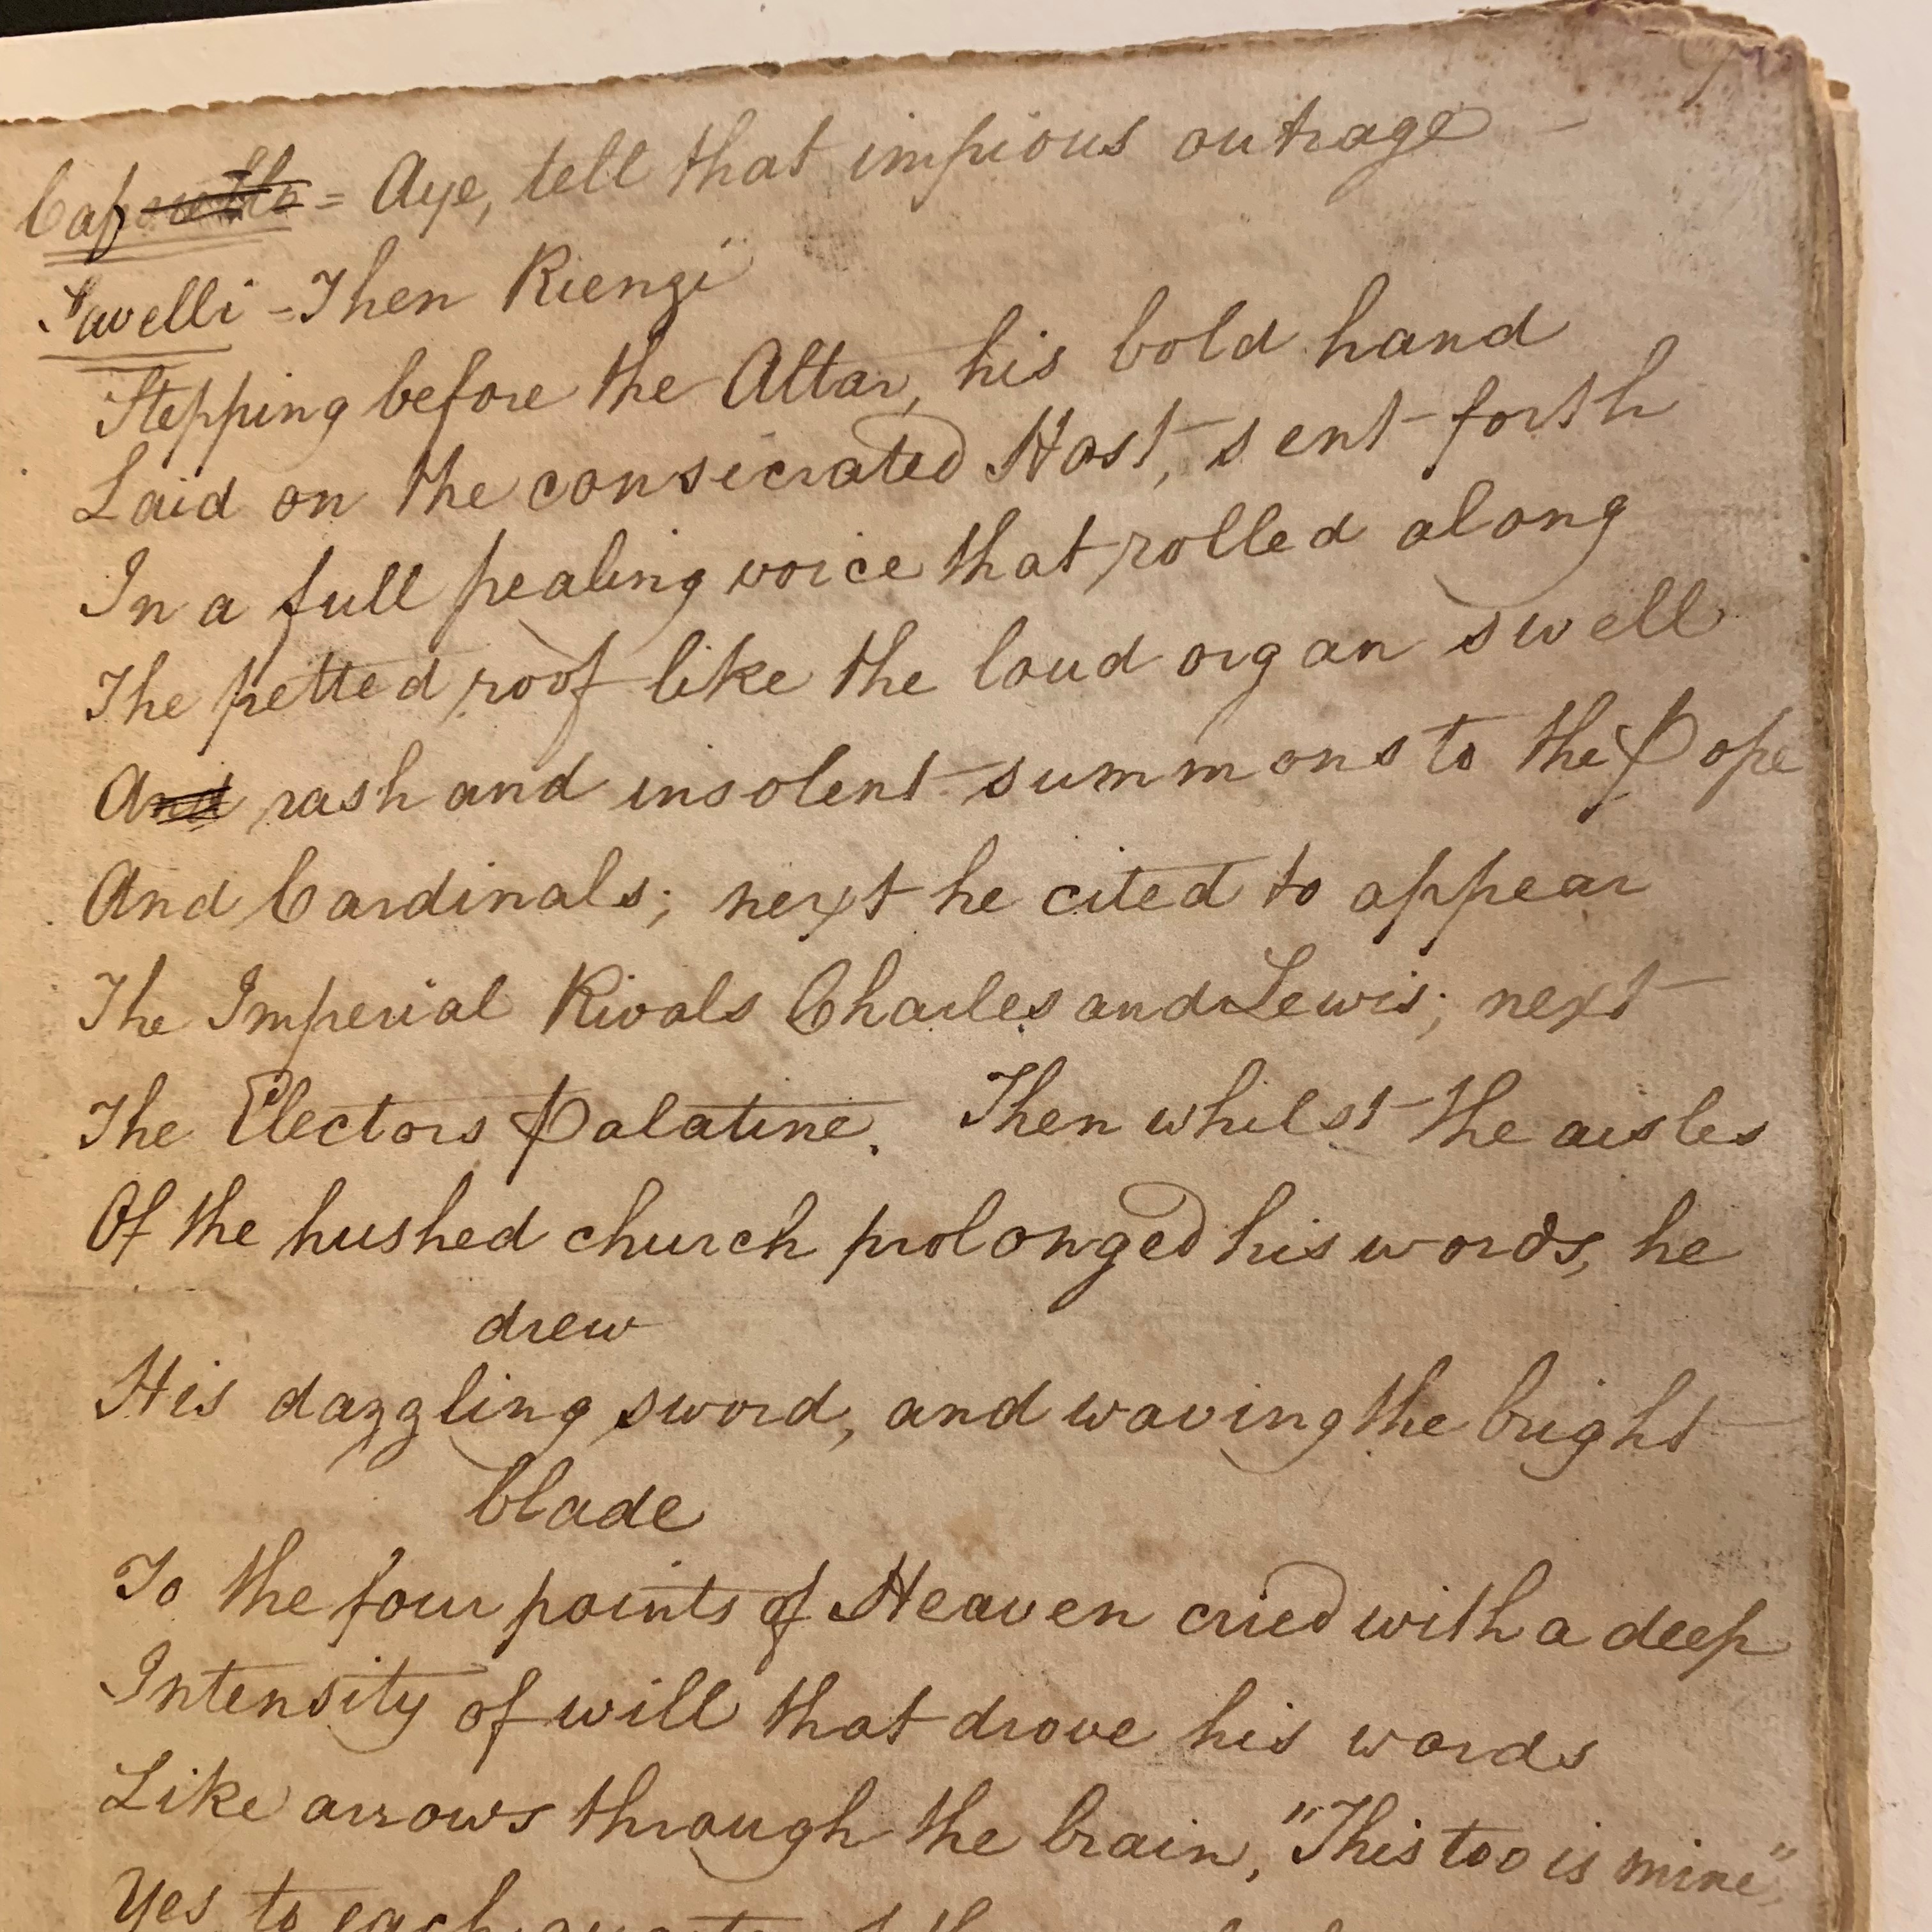 Cap = Aye, tell that impious outrage -
Savelli = Then Rienzi
Stepping before the Altar, his bold hand
Laid on the consecrated Host, sent forth
In a full pealing voice that rolled along
The fretted roof like the loud organ swell
A rash and insolent summons to the Pope
And Cardinals; next he cited to appear
The Imperial Rivals Charles and Lewis; next
The Electors Palatine. Then whilst the aisles
Of the hushed church prolonged his words, he
drew
His dazzling sword, and waving the bright
blade
To the four points of Heaven cried with a deep
Intensity of will that drove his words
Like arrows through the brain, "This too is mine",
Yes to each